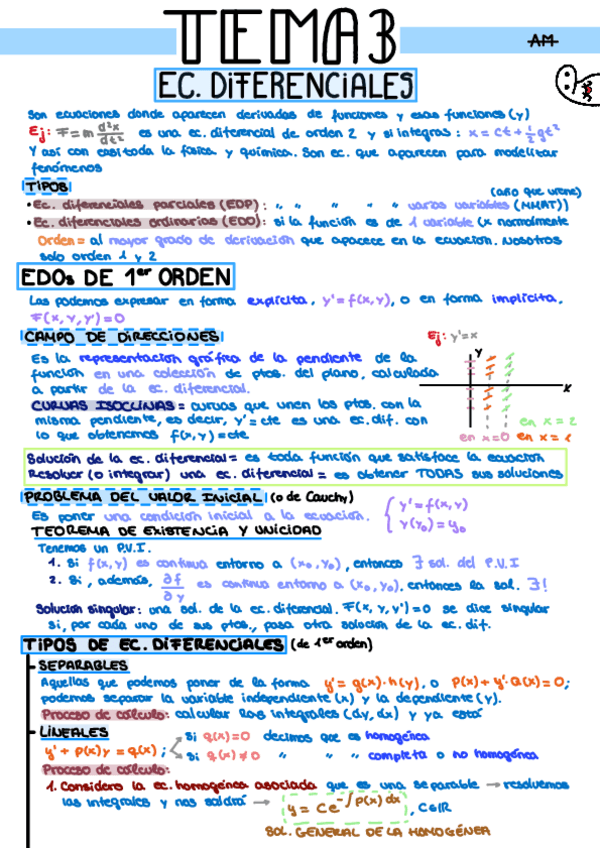 TEMA 3
AM
EC. DIFERENCIALES
Son ecuaciones donde aparecen derivadas de funciones y esas funciones (y)
Ej: F = m d²x/dt² es una ec. diferencial de orden 2 y si integras: x = ct + 1/2 gt²
Y así con casi toda la física y química. Son ec. que aparecen para modelizar
fenómenos
TIPOS
(año que viene)
• Ec. diferenciales parciales (EDP): " " " " " varias variables (MMAT))
• Ec. diferenciales ordinarias (EDO): si la función es de 1 variable (x normalmente
Orden = al mayor grado de derivación que aparece en la ecuación. Nosotros
solo orden 1 y 2
EDOs DE 1er ORDEN
Las podemos expresar en forma explícita, y' = f(x,y), o en forma implícita,
F(x, y, y') = 0
CAMPO DE DIRECCIONES
Ej: y' = x
Es la representación gráfica de la pendiente de la
función en una colección de ptos. del plano, calculada
a partir de la ec. diferencial.
CURVAS ISOCLINAS = curvas que unen los ptos. con la
misma pendiente, es decir, y' = cte es una ec. dif. con
lo que obtenemos f(x,y) = cte
y
x
en x = 2
en x = 0 en x = 1
Solución de la ec. diferencial = es toda función que satisface la ecuación
Resolver (o integrar) una ec. diferencial = es obtener TODAS sus soluciones
PROBLEMA DEL VALOR INICIAL (o de Cauchy)
Es poner una condición inicial a la ecuación.
{ y' = f(x,y)
y(y₀) = y₀
TEOREMA DE EXISTENCIA Y UNICIDAD
Tenemos un P.V.I.
1. Si f(x,y) es continua entorno a (x₀, y₀), entonces ∃ sol. del P.V.I
2. Si, además, ∂f/∂y es continua entorno a (x₀, y₀), entonces la sol. ∃!
Solución singular: una sol. de la ec. diferencial. F(x, y, y') = 0 se dice singular
si, por cada uno de sus ptos., pasa otra solución de la ec. dif.
TIPOS DE EC. DIFERENCIALES (de 1er orden)
- SEPARABLES
Aquellas que podemos poner de la forma y' = g(x)·h(y), o P(x) + y'·Q(x) = 0;
podemos separar la variable independiente (x) y la dependiente (y).
Proceso de cálculo: calcular las integrales (dy, dx) y ya está
- LINEALES
y' + p(x)y = q(x);
si q(x) = 0 decimos que es homogénea
si q(x) ≠ 0 " " " completa o no homogénea
Proceso de cálculo:
1. Considero la ec. homogénea asociada que es una separable → resolvemos
las integrales y nos saldrá → y = Ce^(-∫p(x)dx), C∈ℝ
SOL. GENERAL DE LA HOMOGÉNEA